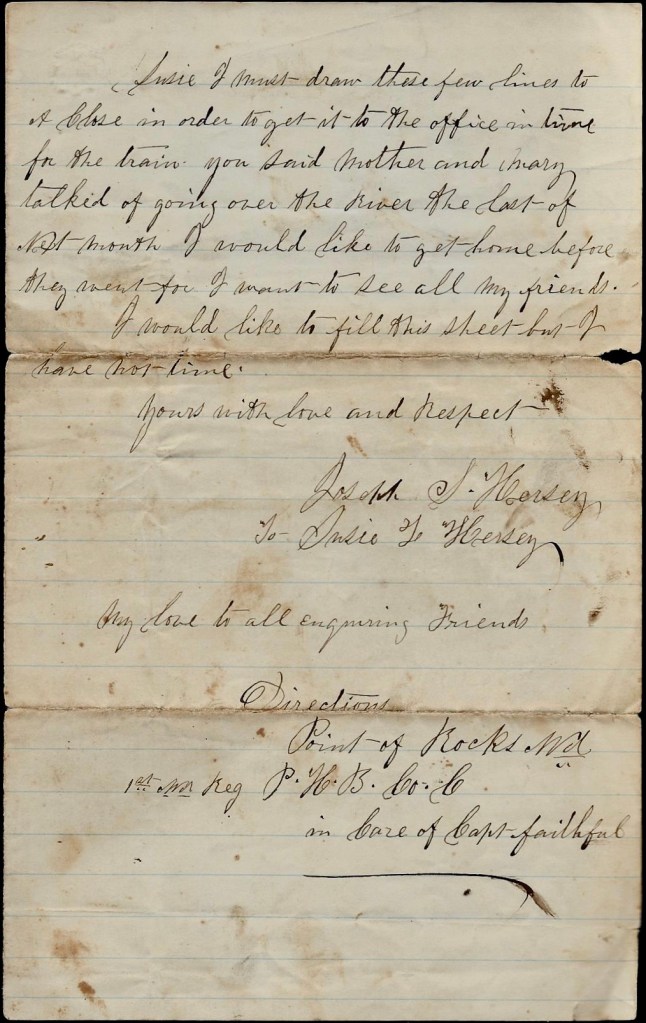 Susie I must draw these few lines to
A Close in order to get it to the office in time
for the train. you said Mother and Mary
talkid of going over the River the last of
Next month I would like to get home before
they went for I want to see all my friends.
I would like to fill this sheet but I
have not time.
Yours with love and Respect
Joseph S. Hersey
To Susie F Hersey
My love to all enquiring Friends
Directions
Point of Rocks Md
1st Md Reg P. H. B. Co. C
in Care of Capt faithful